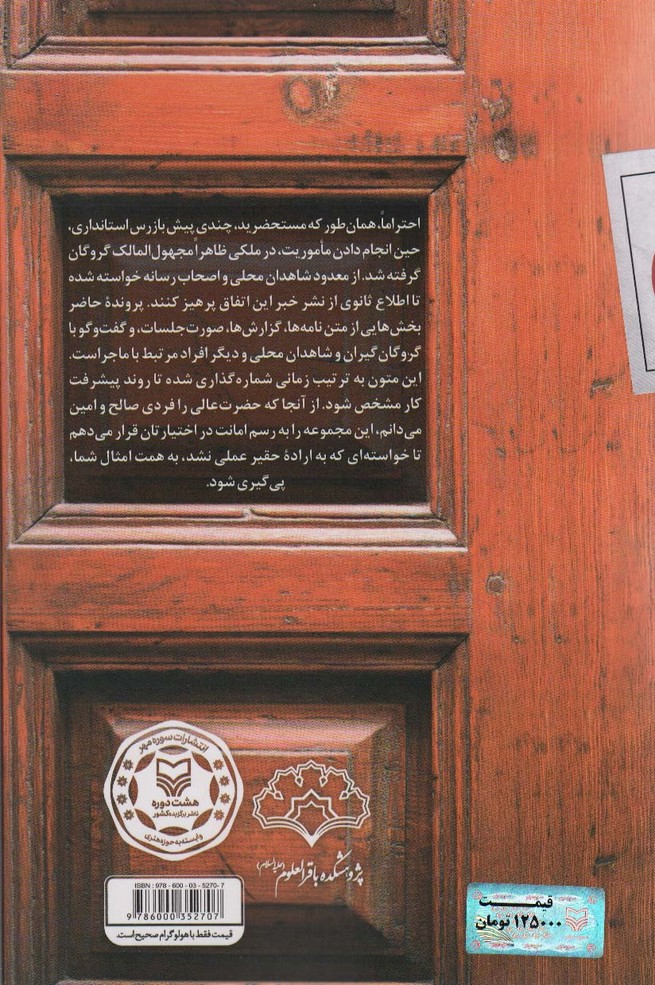 احتراماً، همان‌طور که مستحضرید، چندی پیش بازرس استانداری،
حین انجام دادن مأموریت، در ملکی ظاهراً مجهول‌المالک گروگان
گرفته شد. از معدود شاهدان محلی و اصحاب رسانه خواسته شده
تا اطلاع ثانوی از نشر خبر این اتفاق پرهیز کنند. پروندهٔ حاضر
بخش‌هایی از متن نامه‌ها، گزارش‌ها، صورت‌جلسات، و گفت‌وگو با
گروگان‌گیران و شاهدان محلی و دیگر افراد مرتبط با ماجراست.
این متون به ترتیب زمانی شماره‌گذاری شده تا روند پیشرفت
کار مشخص شود. از آنجا که حضرت‌عالی را فردی صالح و امین
می‌دانم، این مجموعه را به رسم امانت در اختیارتان قرار می‌دهم
تا خواسته‌ای که به ارادهٔ حقیر عملی نشد، به همت امثال شما،
پی‌گیری شود.
انتشارات سوره مهر
هشت دوره
ناشر برگزیده کشور
وابسته به حوزه هنری
پژوهشکده باقرالعلوم (علیه‌السلام)
ISBN: 978 - 600 - 03 - 5270- 7
9 786000 352707
قیمت فقط با هولوگرام صحیح است.
قیمت
۱۲۵۰۰۰ تومان